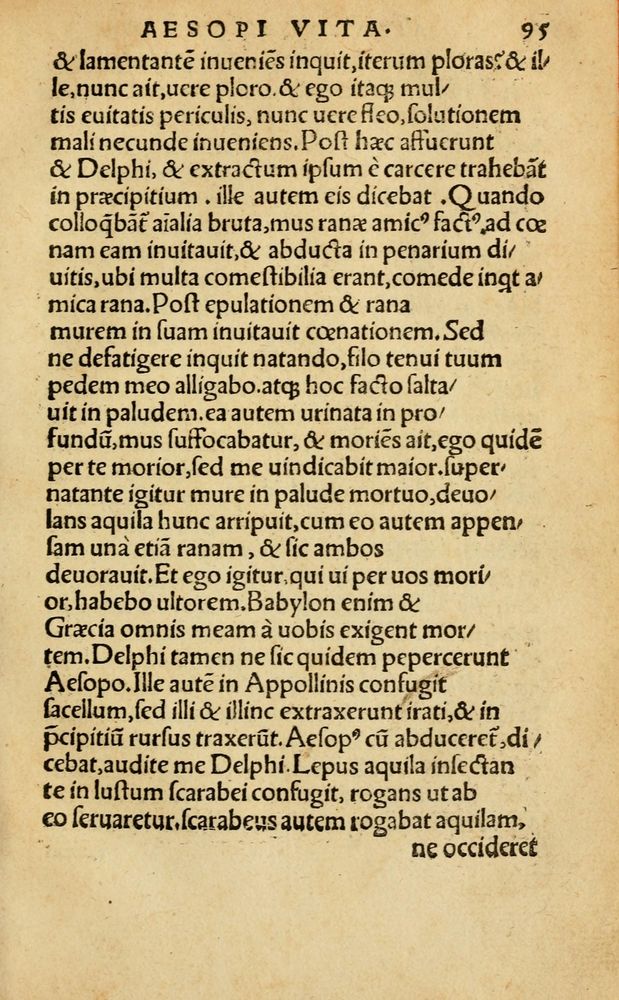 AESOPI VITA. 95
& lamentantē inueniēs inquit,iterum ploras?& il/
le,nunc ait,uere ploro.& ego itaqꝫ mul/
tis euitatis periculis, nunc uere fleo,solutionem
mali necunde inueniens.Post hæc affuerunt
& Delphi, & extractum ipsum è carcere trahebāt
in præcipitium . ille autem eis dicebat .Quando
colloq̃bāt̃ aĩalia bruta,mus ranæ amicꝰ factꝰ,ad cœ
nam eam inuitauit,& abducta in penarium di/
uitis,ubi multa comestibilia erant,comede inqt a/
mica rana.Post epulationem & rana
murem in suam inuitauit cœnationem.Sed
ne defatigere inquit natando,filo tenui tuum
pedem meo alligabo.atqꝫ hoc facto salta/
uit in paludem.ea autem urinata in pro/
fundū,mus suffocabatur, & moriēs ait,ego quidē
per te morior,sed me uindicabit maior.super/
natante igitur mure in palude mortuo,deuo/
lans aquila hunc arripuit,cum eo autem appen/
sam unà etiā ranam , & sic ambos
deuorauit.Et ego igitur,qui ui per uos mori/
or,habebo ultorem.Babylon enim &
Græcia omnis meam à uobis exigent mor/
tem.Delphi tamen ne sic quidem pepercerunt
Aesopo.Ille autē in Appollinis confugit
sacellum,sed illi & illinc extraxerunt irati,& in
p̄cipitiū rursus traxerūt.Aesopꝰ cū abduceret̃,di/
cebat,audite me Delphi.Lepus aquila insectan
te in lustum scarabei confugit, rogans ut ab
eo seruaretur.scarabeus autem rogabat aquilam,
ne occideret